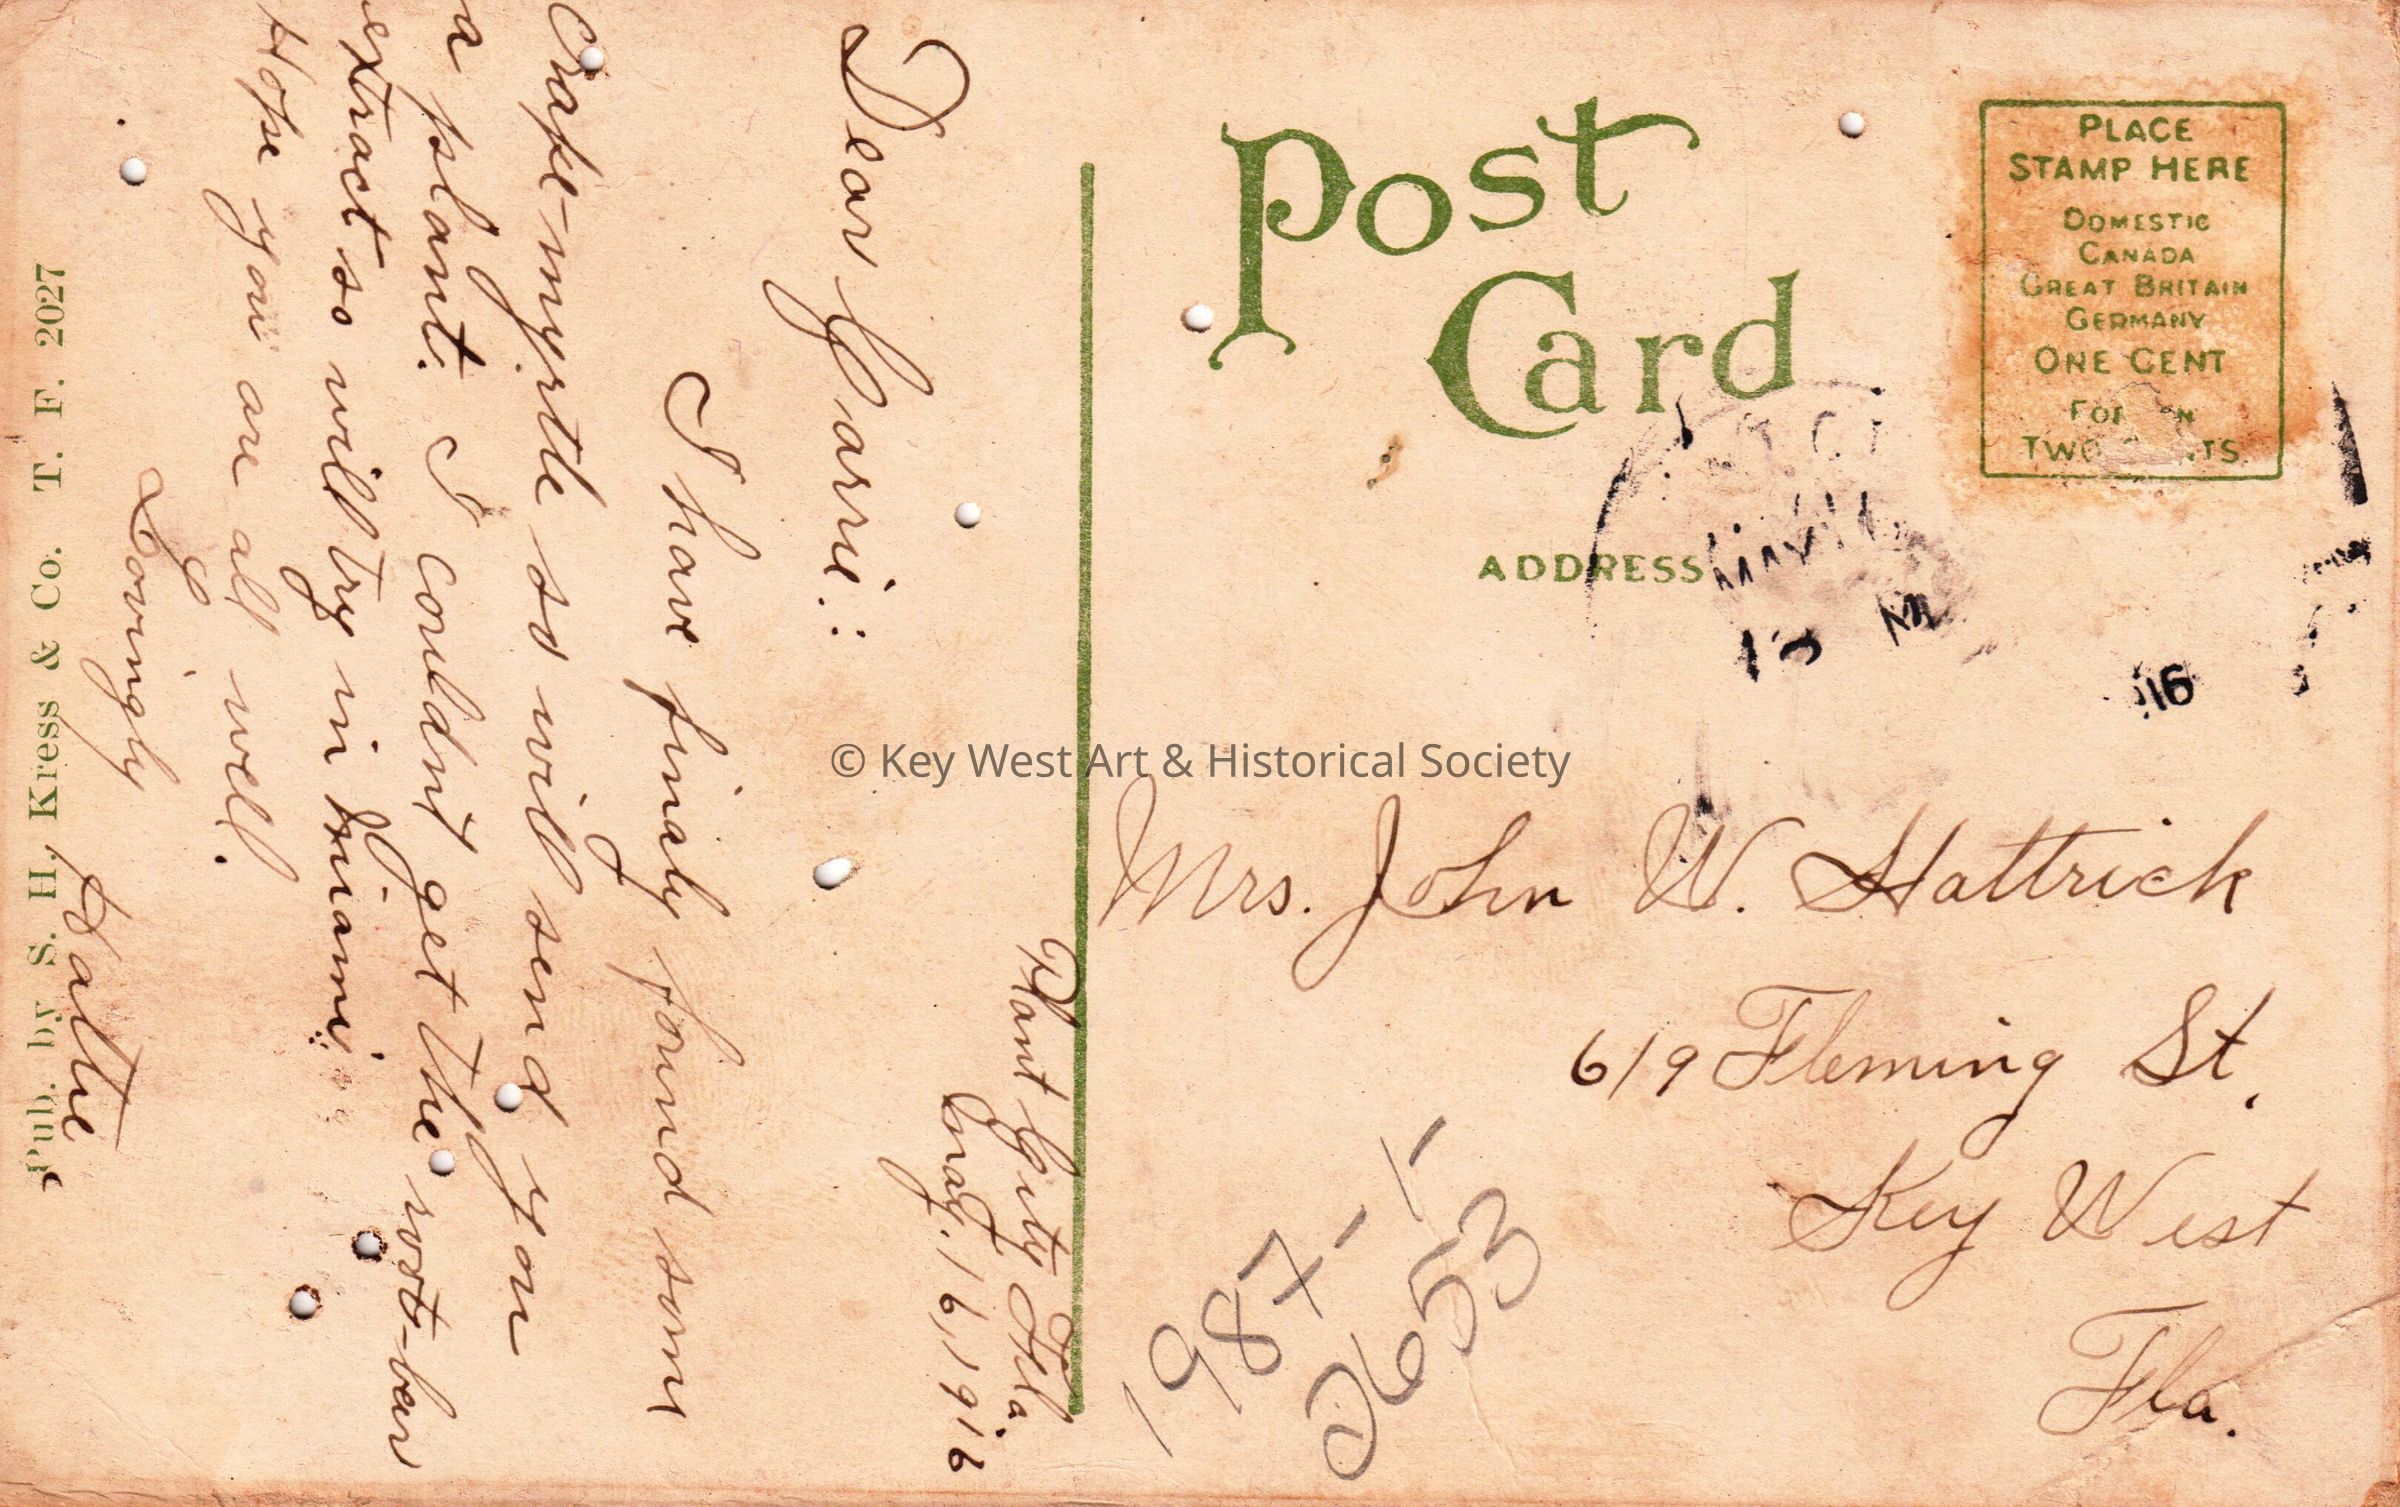 Post
Card
PLACE
STAMP HERE
DOMESTIC
CANADA
GREAT BRITAIN
GERMANY
ONE CENT
TWO
ADDRESS
MAY
M
16
Mrs. John W. Hattrick
619 Fleming St.
Key West
Fla.
1987-1-
2653
Plant City Fla.
May. 16, 1916
Dear Carrie:
I have finaly found some
Crape-myrtle so will send you
a plant. I couldnt get the root-beer
extract so will try in Miami.
Hope you are all well.
Lovingly
Hattie
Pub. by S. H. Kress & Co. T. F. 2027
© Key West Art & Historical Society